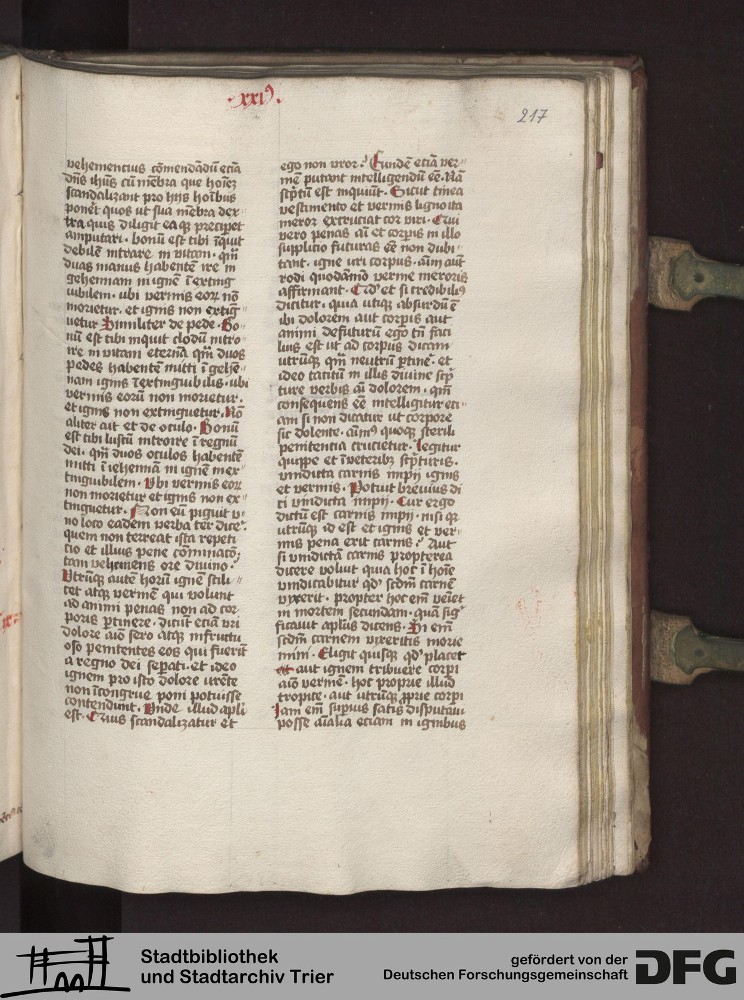 ·xxiꝰ·
217
vehementius cōmendādū eciā
dn̄s ihūs cū mēbra que hoīeꝫ
scandalizant pro hijs hoībus
poneret quos ut sua mēbra dex
tra quis diligit eaqꝫ preciperet
amputari· bonū est tibi īquit
debilē intrare in vitam· qm̄
duas manus habentē ire in
gehennam in ignē īexting
uibilem· ubi vermis eoꝝ nō
morietur· et ignis non exting
uetur Similiter de pede· Bo
nū est tibi inquit clodū intro
ire in vitam eternā qm̄ duos
pedes habentē mitti ī gehē
nam ignis īextinguibilis· ubi
vermis eorū non morietur·
et ignis non extinguetur· Nō
aliter ait et de oculo· Bonū
est tibi luscū introire ī regnū
dei· qm̄ duos oculos habentē
mitti ī iehennā in ignē inex
tinguibilem· Ubi vermis eoꝝ
non morietur et ignis non ex
tinguetur· Non eū piguit v
no loco eadem verba ter dice̾·
quem non terreat ista repeti
cio et illius pene cōminacō;
tam vehemens ore divino·
Utrūqꝫ autē horū ignē scili
cet atqꝫ vermē qui volunt
ad animi penas non ad cor
poris ꝑtinere· dicūt eciā vri
dolore aīo sero atqꝫ infructu
oso penitentes eos qui fuerīt
a regno dei seꝑati· et ideo
ignem pro isto dolore urēte
non īcongrue poni potuisse
contendunt· Unde illud apli
est· Quis scandalizatur et
ego non vror· Eundē eciā ver
mē putant intelligendū eē· Nā
scptū est inquiūt· Sicut tinea
vestimento et vermis ligno ita
meror excruciat cor viri· Qui
vero penas aī et corpis in illo
supplicio futuras eē non dubi
tant· igne uri corpus· aīm aūt
rodi quodāmō verme meroris
affirmant· Qd̾ et si credibiliꝰ
dicitur· quia utiqꝫ absurdū ē
ibi dolorem aut corpis aut
animi defuturū ego tn̄ faci
lius est ut ad corpus dicam
utrūqꝫ qm̄ neutrū ꝑtine̾· et
ideo tacitū in illis divine scp̄
ture verbis aī dolorem· qm̄
consequens eē intelligitur eci
am si non dicatur ut corpore
sic dolente· aīmꝰ quoqꝫ sterili
penitencia crucietur· Legitur
quippe et ī veteribꝫ scpturis·
vindicta carnis impij ignis
et vermis· Potuit brevius di
ci vindicta impij· Cur ergo
dictū est carnis impij· nisi qꝫ
utrūqꝫ id est et ignis et ver
mis pena erit carnis· Aut
si vindictā carnis propterea
dicere voluit quia hoc ī hoīe
vindicabitur qd̾ scdm̄ carnē
vixerit· propter hoc em̄ veīet
in mortem secundam· quā sig
ficauit aplūs dicens· Si em̄
scdm̄ carnem vixeritis morie
mini· Eligit quisqꝫ qd̾ placet
aut ignem tribuere corpi
aīo vermē· hoc proprie illud
tropice· aut utrūqꝫ ꝓprie corpi
Jam em̄ superius satis disputaui
posse aīalia eciam in ignibus
Stadtbibliothek
und Stadtarchiv Trier
gefördert von der
Deutschen Forschungsgemeinschaft
DFG